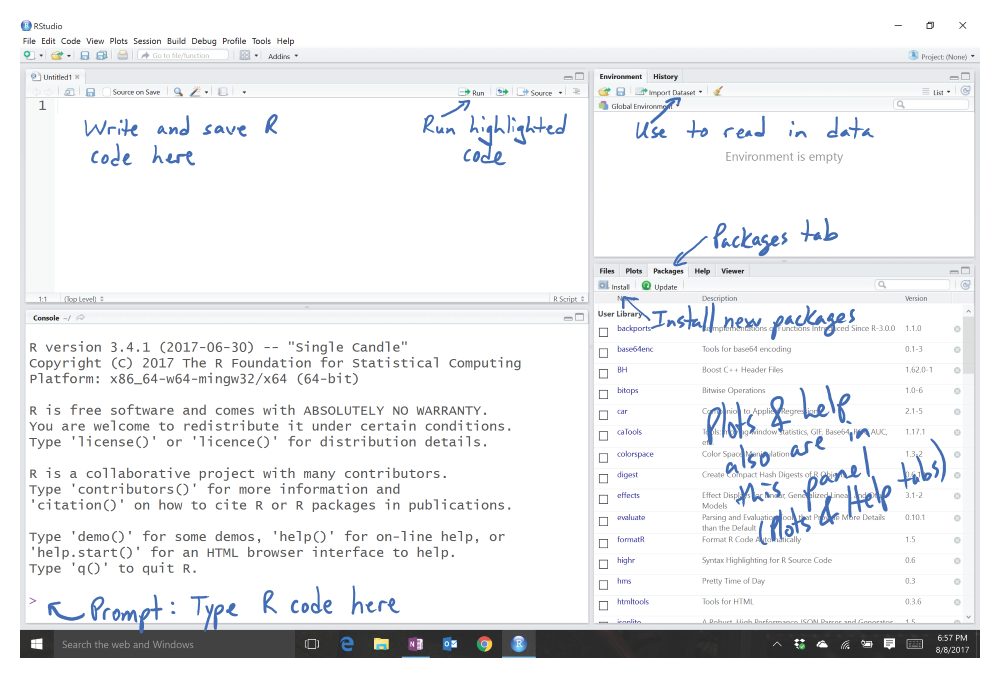 RStudio
File Edit Code View Plots Session Build Debug Profile Tools Help
Go to file/function Addins
Project: (None)
Untitled1
Source on Save Run Source
1
Write and save R
code here
Run highlighted
code
1:1 (Top Level) R Script
Environment History
Import Dataset List
Global Environment
Use to read in data
Environment is empty
Packages tab
Files Plots Packages Help Viewer
Install Update
Description Version
Install new packages
User Library
backports 1.1.0
base64enc Tools for base64 encoding 0.1-3
BH Boost C++ Header Files 1.62.0-1
bitops Bitwise Operations 1.0-6
car Companion to Applied Regression 2.1-5
caTools 1.17.1
colorspace Color Space Manipulation 1.3-2
digest Create Compact Hash Digests of R Objects
effects 3.1-2
Models
evaluate 0.10.1
than the Default
formatR Format R Code Automatically 1.5
highr Syntax Highlighting for R Source Code 0.6
hms Pretty Time of Day 0.3
htmltools Tools for HTML 0.3.6
Plots & help
also are in
this panel
(Plots & Help tabs)
Console ~/
R version 3.4.1 (2017-06-30) -- "Single Candle"
Copyright (C) 2017 The R Foundation for Statistical Computing
Platform: x86_64-w64-mingw32/x64 (64-bit)
R is free software and comes with ABSOLUTELY NO WARRANTY.
You are welcome to redistribute it under certain conditions.
Type 'license()' or 'licence()' for distribution details.
R is a collaborative project with many contributors.
Type 'contributors()' for more information and
'citation()' on how to cite R or R packages in publications.
Type 'demo()' for some demos, 'help()' for on-line help, or
'help.start()' for an HTML browser interface to help.
Type 'q()' to quit R.
>
Prompt: Type R code here
Search the web and Windows
6:57 PM
8/8/2017